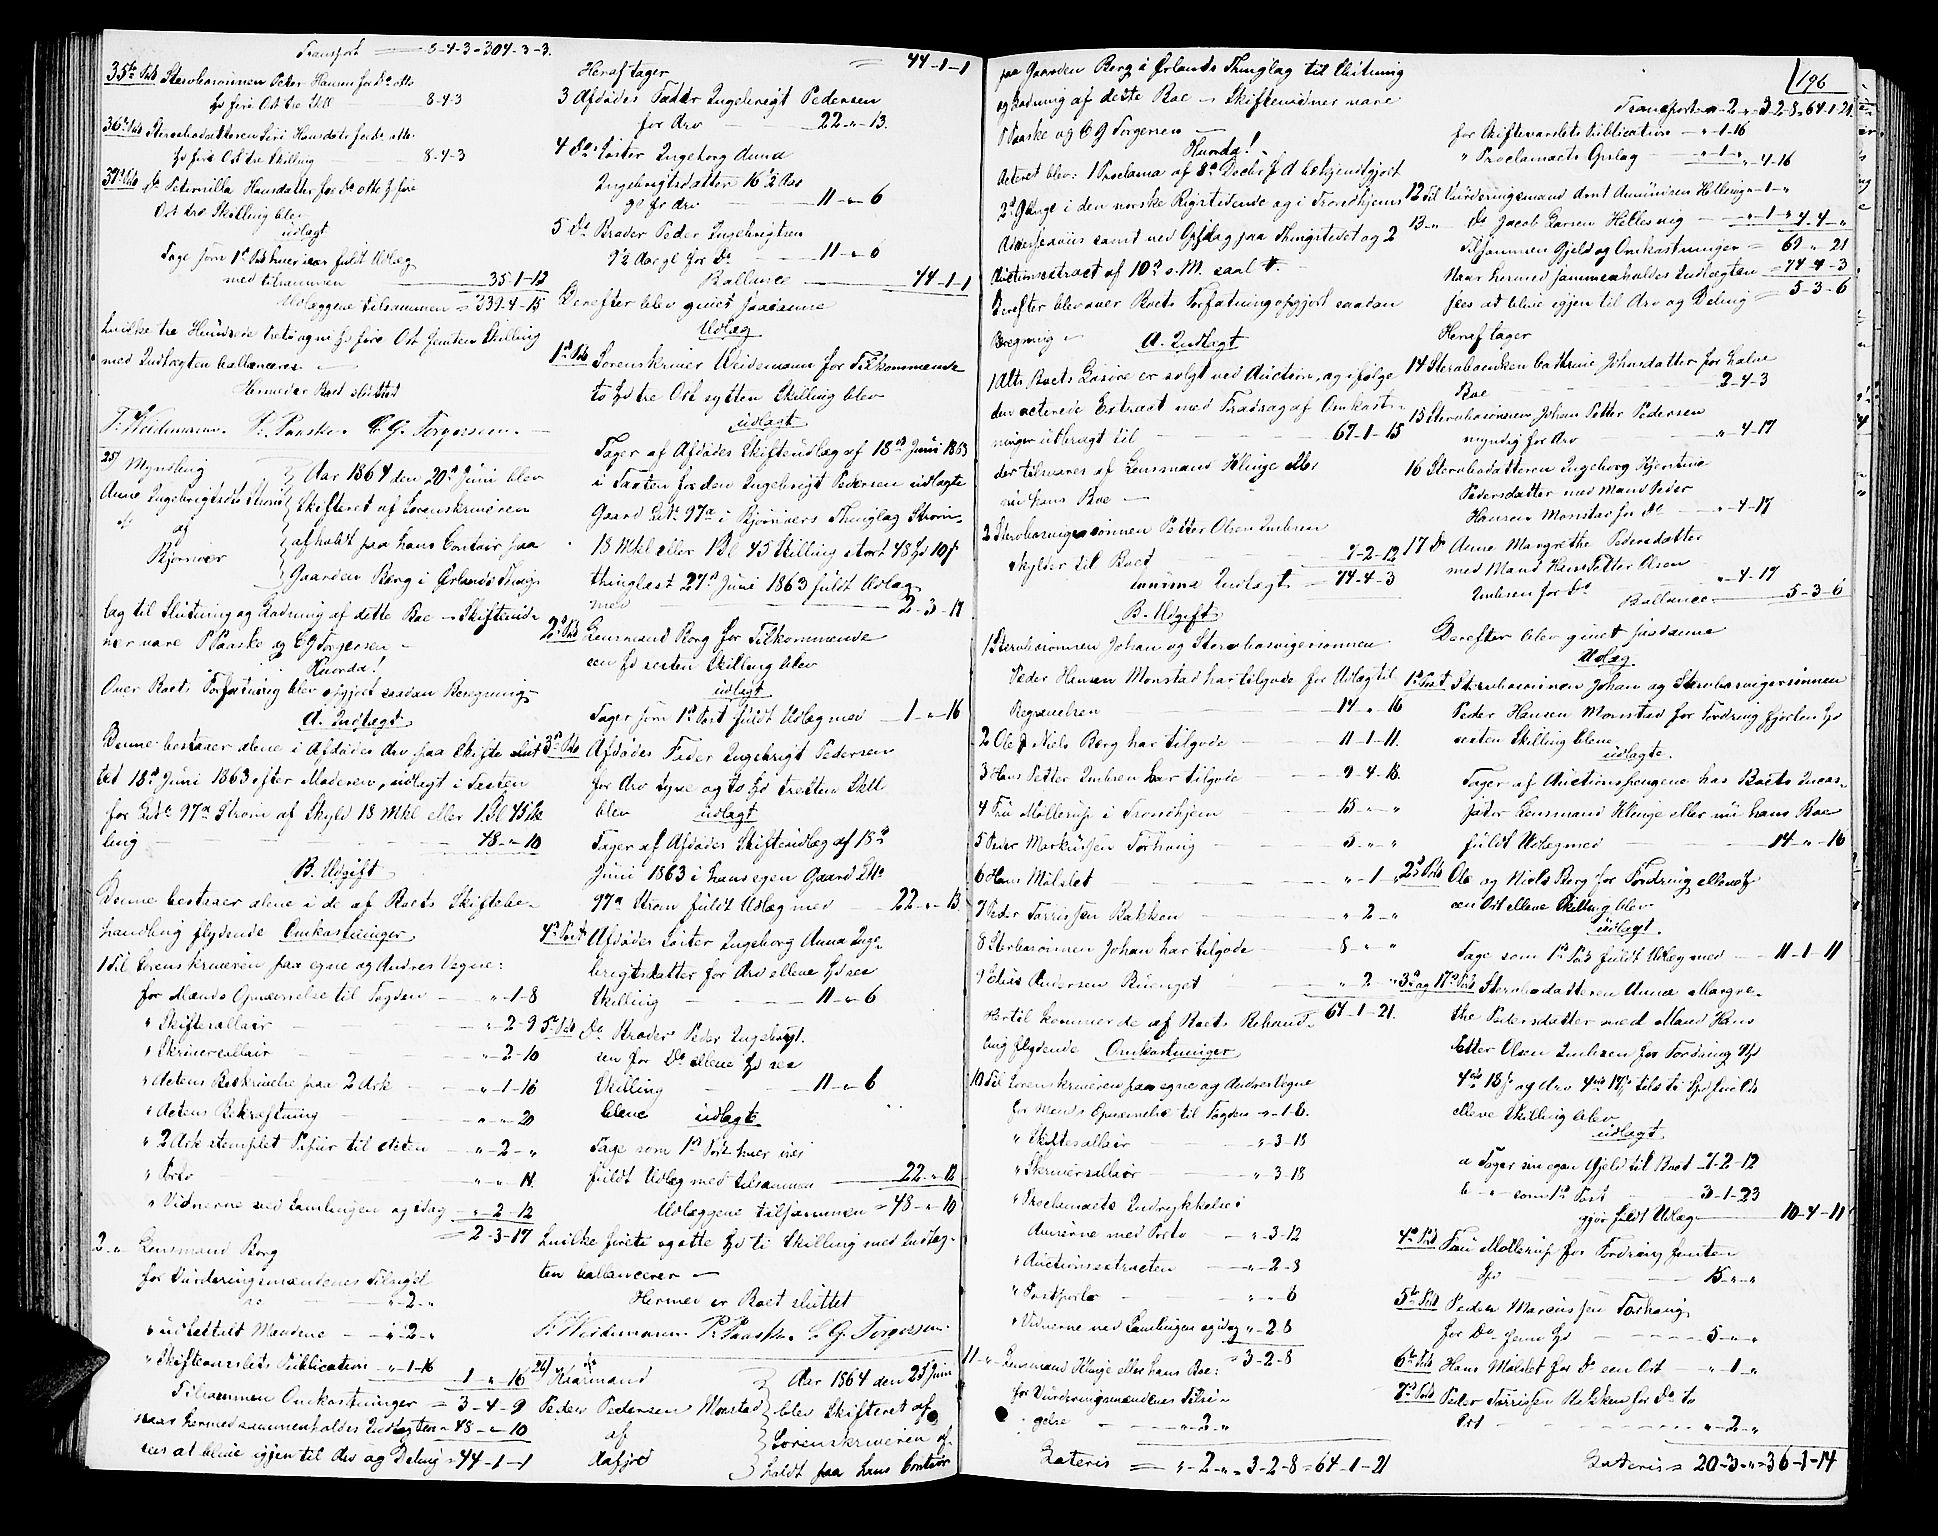 Transport — 8-4-3 = 304-3-3.
35te Post Stervbosønnen Peter Hansen for Do otte
Spd fire Ort tre Skill — 8-4-3
36te Post Stervbodatteren Siri Hansdatr for do otte
Spd fire Ort tre Skilling — 8-4-3
37te Post do Petternilla Hansdatter for Do otte Spd fire
Ort tre Skilling blev
udlagt
Tage som 1ste Post hver især fuldt Udlæg
med tilsammen — 35-1-12
Udlæggene tilsammen = 339-4-15
hvilke tre Hundrede treti og ni Spd fire Ort femten Skilling
med Indtægten ballancerer —
Hermed er Boet sluttet
F. Weidemann. P. Paaske. C. G. Torgersen.
25) Myndling
Anne Ingebrigtsdtr Strøm
af
Bjørnør
Aar 1864 den 20de Juni blev
Skifteret af Sorenskriveren
afholdt paa hans Contoir paa
Gaarden Borg i Ørlands Thing-
lag til Slutning og Endning af dette Boe – Skiftevid-
ner vare P Paaske og C G Torgersen –
Hvorda!
Over Boets Forfatning blev opgjort saadan Beregning
A. Indtægt
Denne bestaaer alene i Afdødes Arv paa Skifte slut-
tet 18de Juni 1863 efter Moderen, udlagt i Texten
for Litr 97a Strøm af Skyld 18 Mkl eller 1 Bl 45 Skil-
ling — 48-"-10
B. Udgift
Denne bestaaer alene i de af Boets Skiftebe-
handling flydende Omkostninger
1 Til Sorenskriveren paa egne og Andres Vegne:
for Mænds Opnævnelse til Taxten — "-1-8
" Skiftesallair — "-2-9
" Skriversallair — "-2-10
" Actens Beskrivelse paa 2 Ark — "-1-16
" Actens Bekræftning — "-"-20
" 2 Ark stemplet Papiir til Acten — "-2-"
" Porto — "-"-14
" Vidnerne ved Samlingen og idag — "-2-12
= 2-3-17
2 " Lensmand Borg
for Vurderingsmændenes Tilsigel-
se — "-2-"
" udbetalt Mændene — "-2-"
" Skiftevarslets Publication — "-1-16
1-"-16
Tilsammen Omkostninger = 3-4-9
naar hermed sammenholdes Indtægten = 48-"-10
sees at blive igjen til Arv og Deling = 44-1-1
Heraf tager = 44-1-1
3 Afdødes Fader Ingebrigt Pedersen
for Arv — 22-"-13.
4 Do Søster Ingeborg Anna
Ingebrigtsdatter 16½ Aar
gl for Arv — 11-"-6
5 Do Broder Peder Ingebrigtsen
9½ Aar gl for Do — 11-"-6
Ballance — 44-1-1
Derefter blev givet saadanne
Udlæg
1ste Post Sorenskriver Weidemann for Tilkommende
to Spd tre Ort sytten Skilling blev
udlagt
Tager af Afdødes Skifteudlæg af 18de Juni 1863
i Taxten for den Ingebrigt Pedersen udlagte
Gaard Litr 97a i Bjørnørs Thinglag Strøm
18 Mkl eller 1 Bl 45 Skilling stort 48 Spd 10 s
thinglæst 27de Juni 1863 fuldt Udlæg
med — 2-3-17
2den Post Lensmand Borg for Tilkommende
een Spd sexten Skilling blev
udlagt
Tager som 1ste Post fuldt Udlæg med — 1-"-16
3die Post Afdødes Fader Ingebrigt Pedersen
for Arv tyve og to Spd tretten Skill
blev udlagt
Tager af Afdødes Skifteudlæg af 18de
Juni 1863 i hans egen Gaard Litr
97a Strøm fuldt Udlæg med — 22-"-13
4de Post Afdødes Søster Ingeborg Anna Inge-
brigtsdatter for Arv elleve Spd sex
Skilling — 11-"-6
5te Post Do Broder Peder Ingebrigt-
sen for Do elleve Spd sex
Skilling — 11-"-6
bleve udlagte
Tage som 1ste Post hver især
fuldt Udlæg med tilsammen — 22-"-12
Udlæggene tilsammen = 48-"-10
hvilke førti og otte Spd ti Skilling med Indtæg-
ten ballancerer —
Hermed er Boet sluttet
F. Weidemann. P. Paaske. C. G. Torgersen.
26) Kaarmand
Peder Pedersen Monstad
af
Aafjord
Aar 1864 den 25de Juni
blev Skifteret af
Sorenskriveren af-
holdt paa hans Contoir
paa Gaarden Borg i Ørlands Thinglag til Slutning
og Endning af dette Boe – Skiftevidner vare
P Paaske og C G Torgersen —
Hvorda!
Acteret blev: 1 Proclama af 8de Decbr f A bekjendtgjort
2de Gange i den norske Rigstidende og i Trondhjems
Adresseaviis samt ved Opslag paa Thingstedet og 2
Auctionsextract af 10de s. M. saal. —
Derefter blev over Boets Forfatning opgjort saadan
Beregning – A. Indtægt
1 Alt Boets Løsøre er solgt ved Auction, og ifølge
den acterede Extract med Fradrag af Omkost-
ninger udbragt til — 67-1-15
der tilsvares af Lensmand Klinge eller
nu hans Boe —
2 Stervbosvigersønnen Petter Olsen Imbsen
skylder til Boet — 7-2-12
summa Indtægt — 74-4-3
B. Udgift
1 Stervbosønnen Johan og Stervbosvigersønnen
Peder Hansen Monstad har tilgode for Udlæg til
Begravelsen — 14-"-16
2 Ole & Niels Borg har tilgode — 11-1-11.
3 Hans Petter Imbsen har tilgode — 9-4-18.
4 Fru Møllerup i Trondhjem — 15-"-"
5 Peder Markussen Torhaug — 5-"-"
6 Hans Mølslet — "-1-"
7 Peder Tørrissen Bakken — "-2-"
8 Stervbosønnen Johan har tilgode — 8-"-"
9 Elias Andersen — "-2-"
64-1-21.
Hertil kommer de af Boets Behand-
ling flydende Omkostninger
10 Til Sorenskriveren paa egne og Andres Vegne
for Mænds Opnævnelse til Taxten "-1-8.
" Skiftesallair — "-3-18
" Skriversallair — "-3-18
" Proclamaets Indrykkelse i
Aviserne med Porto — "-3-12
" Auctionsextracten — "-2-8
" Postporto — "-"-6
" Vidnerne ved Samlingen og idag "-2-8
= 3-2-8
11 " Lensmand Klinge eller hans Boe:
for Vurderingsmændenes Tilsi-
gelse — "-2-"
Lateris = "-2-" = 3-2-8 = 64-1-21
196
Transport = "-2-" 3-2-8 = 64-1-21
for Skiftevarslets Publication — "-1-16
" Proclamaets Opslag — "-1-" "-4-16
12 Til Vurderingsmand Arnt Amundsen Hellesvig "-1-"
13 " Do Jacob Larsen Hellesvig — "-1-" = 4-4-"
tilsammen Gjeld og Omkostninger = 69-"-21
Naar hermed sammenholdes Indtægten = 74-4-3
sees at blive igjen til Arv og Deling = 5-3-6
Heraf tager
14 Stervboenken Cathrine Johnsdatter for halve
Boe — 2-4-3
15 Stervbosønnen Johan Petter Pedersen
myndig for Arv — "-4-17
16 Stervbodatteren Ingeborg Kjerstine
Pedersdatter med Mand Peder
Hansen Monstad for Do — "-4-17
17 Do Anne Margrethe Pedersdatter
med Mand Hans Petter Olsen
Imbsen for Do — "-4-17
Ballance — 5-3-6
Derefter blev givet saadanne
Udlæg
1ste Post Stervbosønnen Johan og Stervbosvigersønnen
Peder Hansen Monstad for Fordring fjorten Spd
sexten Skilling bleve
udlagte.
Tager af Auctionspengene hos Boets Incas-
sator Lensmand Klinge eller nu hans Boe
fuldt Udlæg med — 14-"-16
2den Post Ole og Niels Borg for Fordring elleve Spd
een Ort elleve Skilling blev
udlagt.
Tage som 1ste Post fuldt Udlæg med — 11-1-11
3die og 17de Post Stervbodatteren Anne Margre-
the Pedersdatter med Mand Hans
Petter Olsen Imbsen for Fordring 9 Spd
4 Ort 18 s og Arv 4 Ort 17 s, tils ti Spd fire Ort
elleve Skilling blev
udlagt,
a Tager sin egen Gjeld til Boet 7-2-12
b " som 1ste Post — 3-1-23
gjør fuldt Udlæg — 10-4-11
4de Post Fru Møllerup for Fordring femten
Spd — 15-"-"
5te Post Peder Marcussen Torhaug
for Do fem Spd — 5-"-"
6te Post Hans Mølslet for Do een Ort — "-1-"
7de Post Peder Tørrissen Bakken for Do to
Ort — "-2-"
Lateris = 20-3-" = 36-1-14